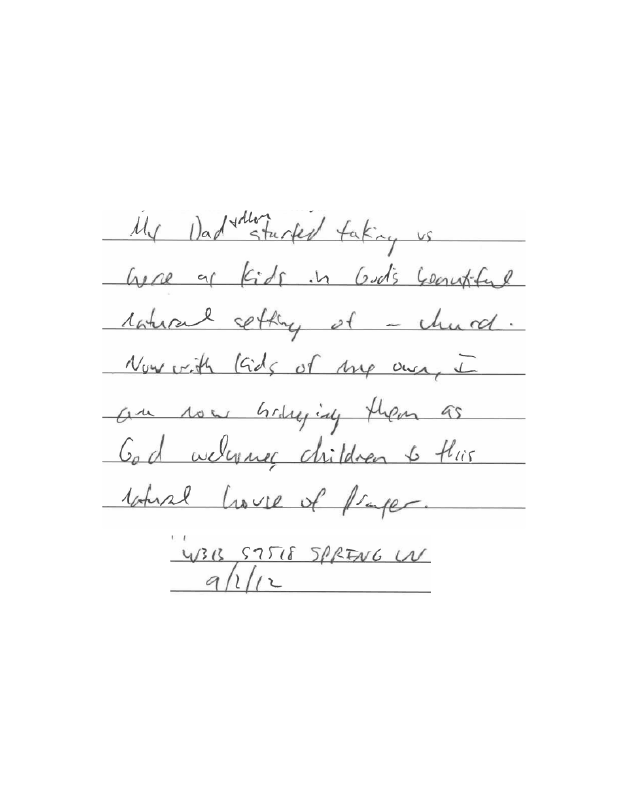 My Dad & Mom started taking us
here as kids in God's beautiful
natural setting of a church.
Now with kids of my own, I
am now bringing them as
God welcomes children to this
natural house of Prayer.
SPRING LN